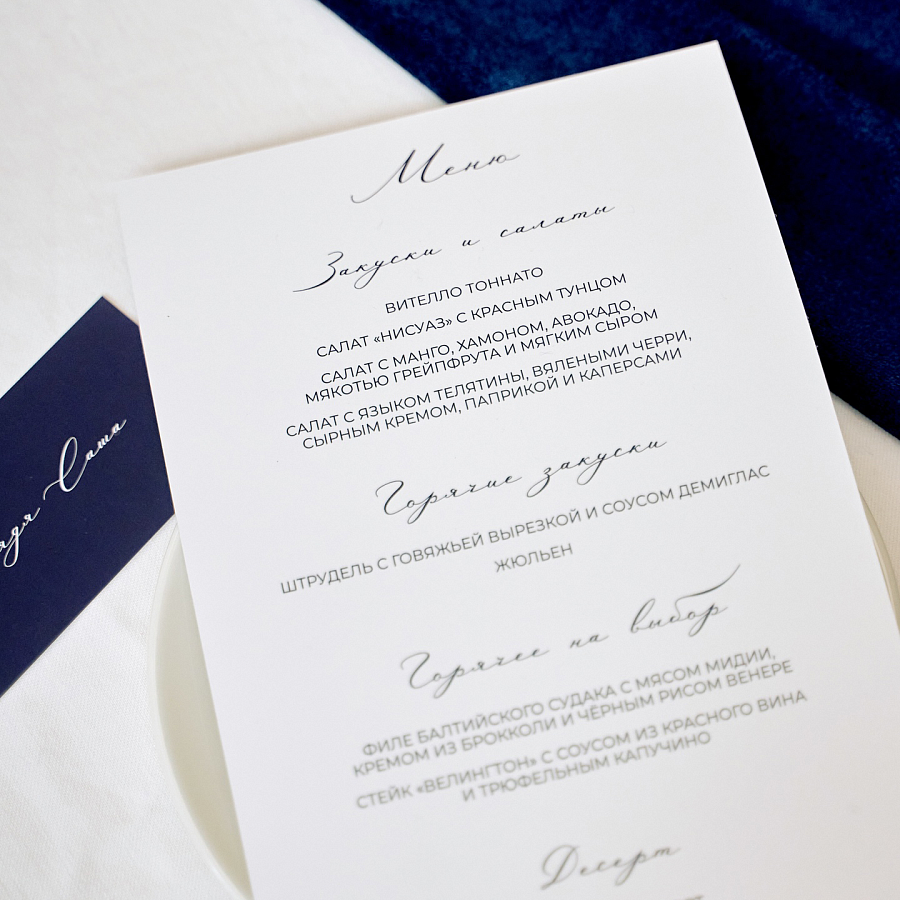 Меню
Закуски и салаты
ВИТЕЛЛО ТОННАТО
САЛАТ «НИСУАЗ» С КРАСНЫМ ТУНЦОМ
САЛАТ С МАНГО, ХАМОНОМ, АВОКАДО,
МЯКОТЬЮ ГРЕЙПФРУТА И МЯГКИМ СЫРОМ
САЛАТ С ЯЗЫКОМ ТЕЛЯТИНЫ, ВЯЛЕНЫМИ ЧЕРРИ,
СЫРНЫМ КРЕМОМ, ПАПРИКОЙ И КАПЕРСАМИ
Горячие закуски
ШТРУДЕЛЬ С ГОВЯЖЬЕЙ ВЫРЕЗКОЙ И СОУСОМ ДЕМИГЛАС
ЖЮЛЬЕН
Горячее на выбор
ФИЛЕ БАЛТИЙСКОГО СУДАКА С МЯСОМ МИДИИ,
КРЕМОМ ИЗ БРОККОЛИ И ЧЁРНЫМ РИСОМ ВЕНЕРЕ
СТЕЙК «ВЕЛИНГТОН» С СОУСОМ ИЗ КРАСНОГО ВИНА
И ТРЮФЕЛЬНЫМ КАПУЧИНО
Десерт
Саша